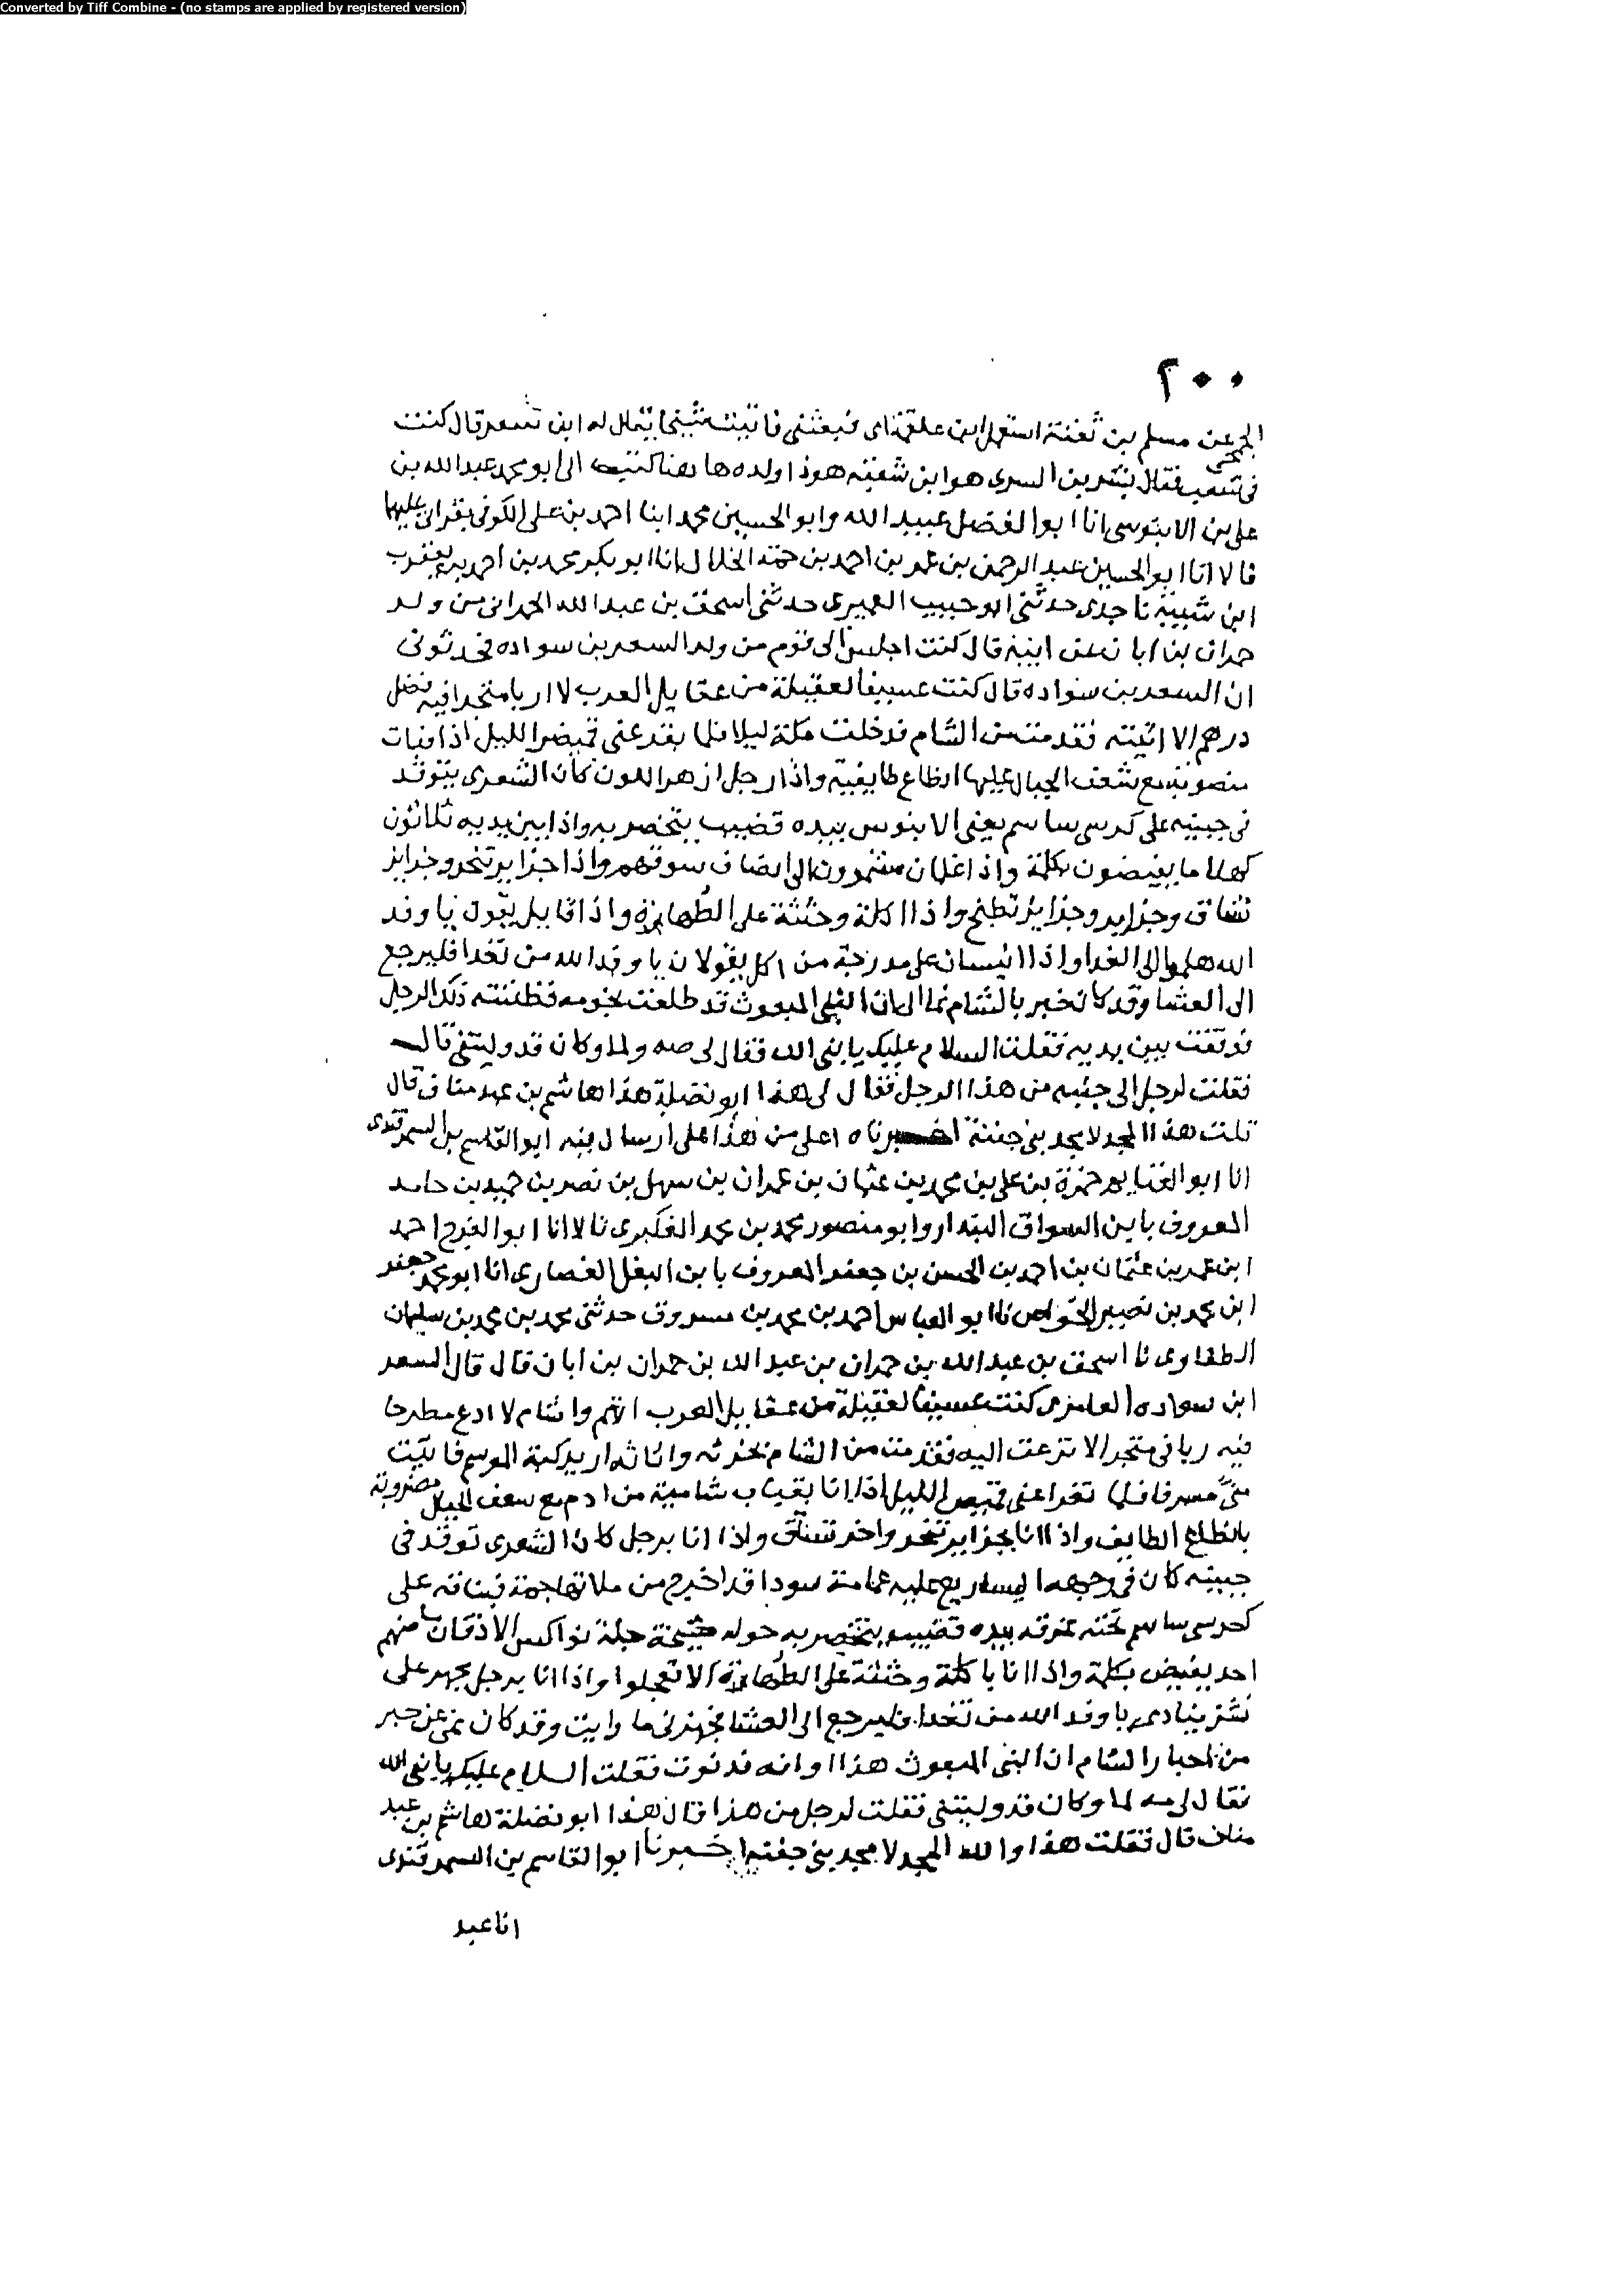 Converted by Tiff Combine - (no stamps are applied by registered version)
٢٠٠
الجمحى عن مسلم بن ثفنة استعمل ابن علقمة ابى فبعثنى فاتيت شيخا يقال له ابن سعر قال كنت
فى شعب فقال بشر بن السرى هو ابن شفنه هوذا ولده هاهنا كتب الى ابو محمد عبد الله بن
على بن الابنوسى انا ابو الفضل عبيد الله وابو الحسين محمد ابنا احمد بن على الكوفى بقراتى عليهما
قالا انا ابو الحسين عبد الرحمن بن عمر بن احمد بن حمة الخلال انا ابو بكر محمد بن احمد بن يعقوب
ابن شيبة نا جدى حدثنى ابو حبيب العميرى حدثنى اسحق بن عبد الله الحمرانى من ولد
حمران بن ابان عن ابيه قال كنت اجلس الى قوم من ولد السعر بن سواده فحدثونى
ان السعر بن سواده قال كنت عسيفا لعقيلة من عقايل العرب لا اربا متجرا فيه فضل
درهم الا اتيته فقدمت من الشام فدخلت مكة ليلا فلما تقد عنى قميص الليل اذا قبات
منصوبة مع شعف الجبال عليها انطاع طايفية واذا رجل ازهر اللون كان الشعرى يتوقد
فى جبينه على كرسى ساسم يعنى الابنوس بيده قضيب يتخصر به واذا بين يديه ثلاثون
كهلا ما يفيضون بكلمة واذا غلمان مشمرون الى انصاف سوقهم واذا جزاير تنحر وجزاير
تساق وجزاير وجزاير تطبخ واذا اكلة وحثثة على الطهاة واذا قايل يقول يا وفد
الله هلموا الى الغدا واذا انيسان على مدرجة من اكل يقولان يا وفد الله من تغدا فليرجع
الى العشا وقد كان خبر بالشام نما الى ان النبى المبعوث قد طلعت نجومه فظننته ذلك الرجل
فوقفت بين يديه فقلت السلام عليك يا نبى الله فقال لى صه ولما وكان قد وليتنى قال
فقلت لرجل الى جنبه من هذا الرجل فقال لى هذا ابو نضلة هذا هاشم بن عبد مناف قال
قلت هذا المجد لا مجد بنى جفنة اخبرناه اعلى من هذا على ارسال فيه ابو القاسم بن السمرقندى
انا ابو الغنايم حمزة بن على بن محمد بن عثمان بن عمران بن سهل بن نصر بن حميد بن حامد
المعروف بابن السواق البندار وابو منصور محمد بن محمد العكبرى قالا انا ابو الفرج احمد
ابن عمر بن عثمان بن احمد بن الحسن بن جعفر المعروف بابن البغل الغضارى انا ابو محمد جعفر
ابن محمد بن نصير الخواص نا ابو العباس احمد بن محمد بن مسروق حدثنى محمد بن محمد بن سليمان
الطفاوى نا اسحق بن عبد الله بن حمران بن عبد الله بن حمران بن ابان قال قال السعر
ابن سواده العامرى كنت عسيفا لعقيلة من عقايل العرب اتهم واشام لا ادع مطرحا
فيه رباى متجر الا نزعت اليه فقدمت من الشام بخرثه واثاثه اريد كبة الموسم فاتيت
منى مسرفا فلما تغرا عنى قميص الليل اذا انا بقباب شامية من ادم مع سعف الجبل مضروبة
بانطاع الطايف واذا انا بجزاير تنحر واخر تساق واذا انا برجل كان الشعرى توقد فى
جبينه كان فى وجهه اساريع عليه عمامة سودا قد اخرج من ملاتها جمة فينانة على
كرسى ساسم تحته نمرقه بيده قضيب يتخصر به حوله مشيخة جلة نواكس الاذقان ما منهم
احد يفيض بكلمة واذا انا باكلة وحثثة على الطهاة الا تعجلوا واذا انا برجل يجهر على
نشز ينادى يا وفد الله من تغدا فليرجع الى العشا فجهرنى ما رايت وقد كان نمى عن حبر
من احبار الشام ان النبى المبعوث هذا اوانه فدنوت فقلت السلام عليك يا نبى الله
فقال لى مه لما وكان قد وليتنى فقلت لرجل من هذا قال هذا ابو نضلة هاشم بن عبد
مناف قال فقلت هذا والله المجد لا مجد بنى جفنة اخبرنا ابو القاسم بن السمرقندى
انا عبد